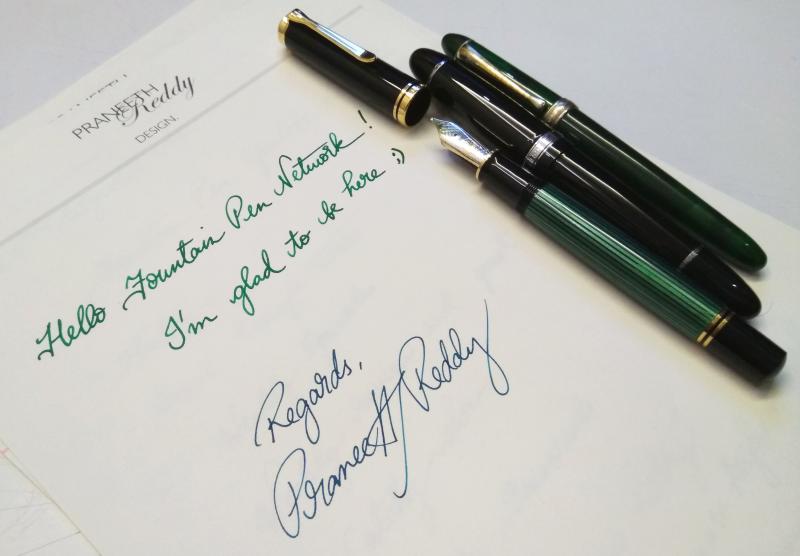 PRANEETH
Reddy
DESIGN.
Hello Fountain Pen Network!
I'm glad to be here :)
Regards,
Praneeth Reddy